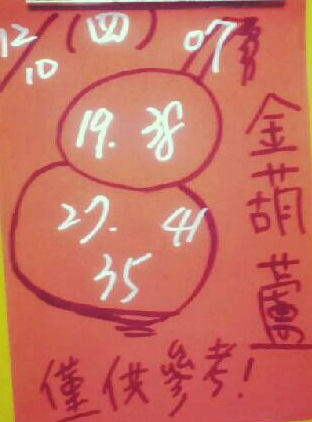 12/10 (四) 07
19. 38
27. 41
35
金葫蘆
僅供參考!